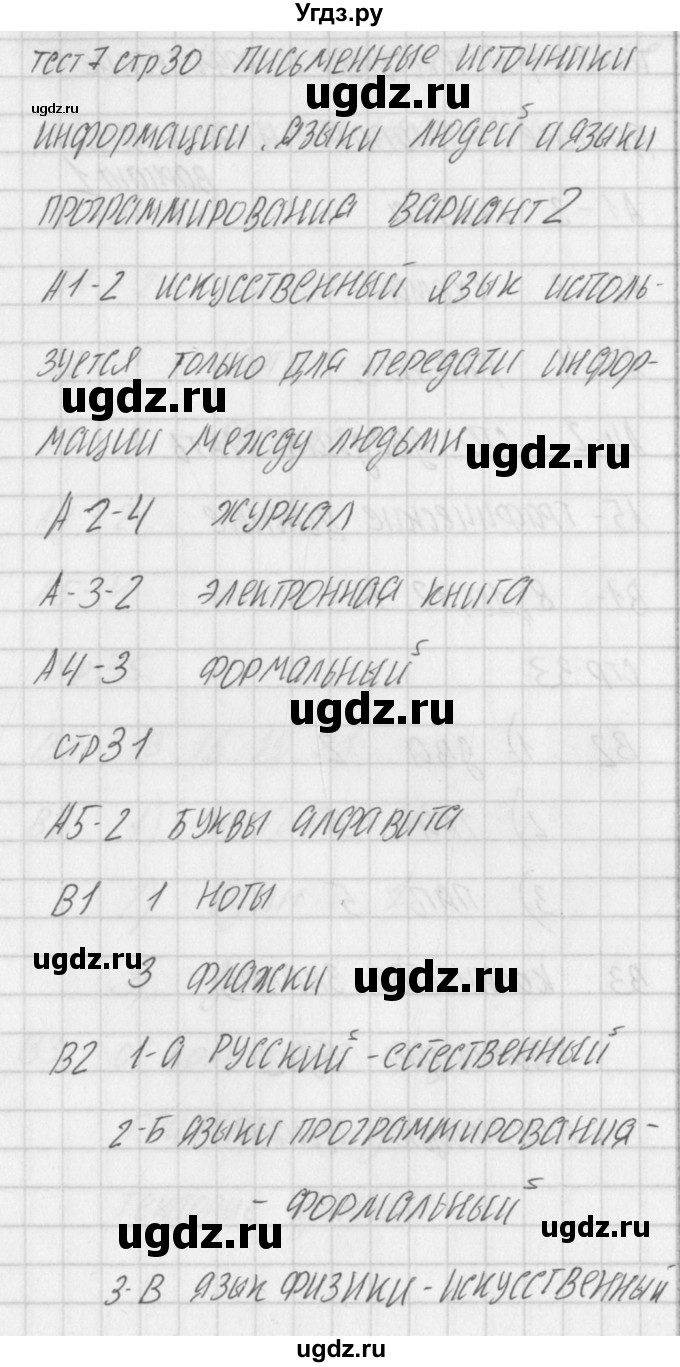 Угдз.ру
тест 7 стр 30 письменные источники
ugdz.ru
ugdz.ru
информации. языки людей и языки
программирования вариант 2
А1-2 искусственный язык исполь-
зуется только для передачи инфор-
ugdz.ru
мации между людьми
ugdz.ru
А 2-4 журнал
А-3-2 электронная книга
А4-3 формальный
ugdz.ru
стр 31
А5-2 Буквы алфавита
В1 1 ноты
ugdz.ru
3 флажки
ugdz.ru
В2 1-а Русский - естественный
2-Б языки программирования-
- формальный
ugdz.ru
ugdz.ru
3-В язык физики - искусственный
ugdz.ru